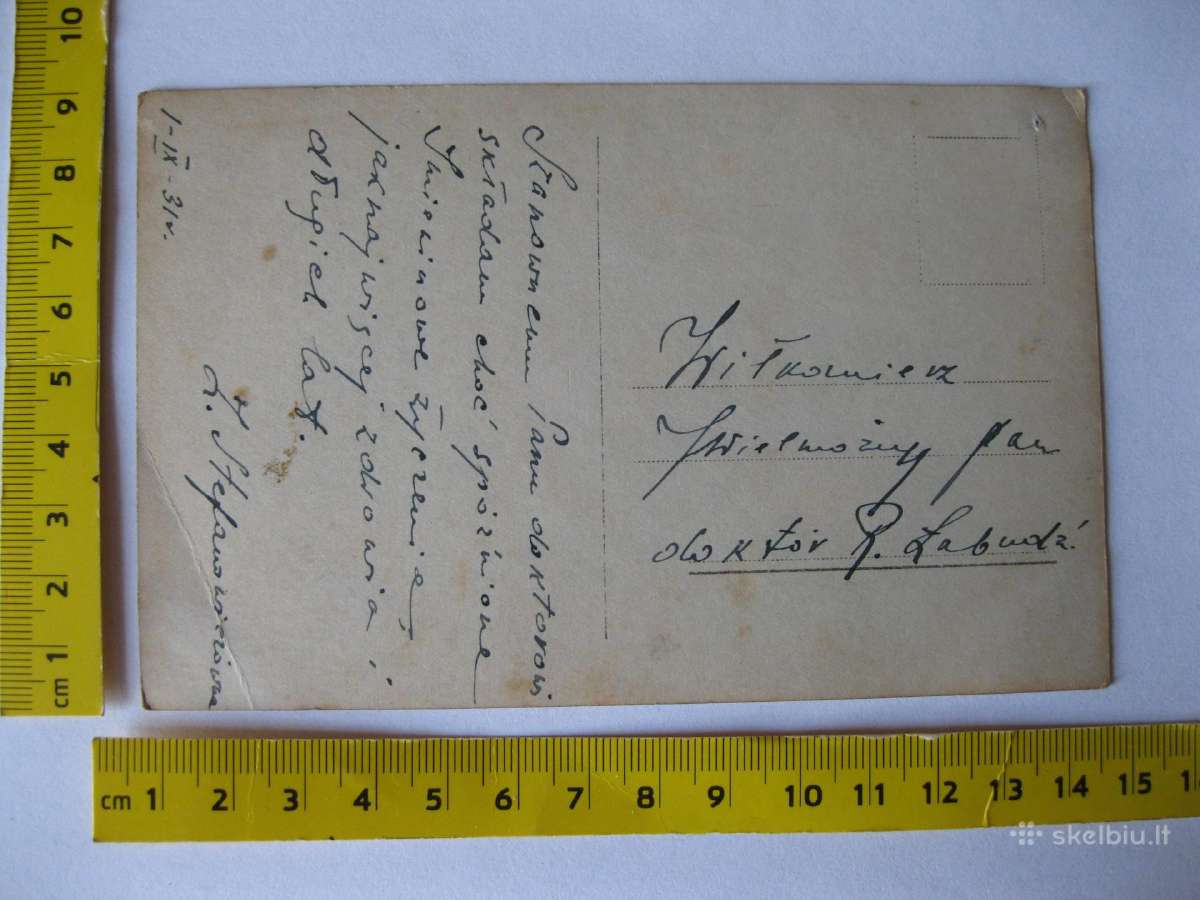 1-IX-31r.
Szanownemu Panu doktorowi
składam choć spóźnione
Imieninowe życzenia
jaknajwięcej zdrowia i
długich lat.
Z. Stefanowiczówna
Wiłkomierz
JWielmożny Pan
doktór R. Łabudź.
cm 1 2 3 4 5 6 7 8 9 10
cm 1 2 3 4 5 6 7 8 9 10 11 12 13 14 15
skelbiu.lt